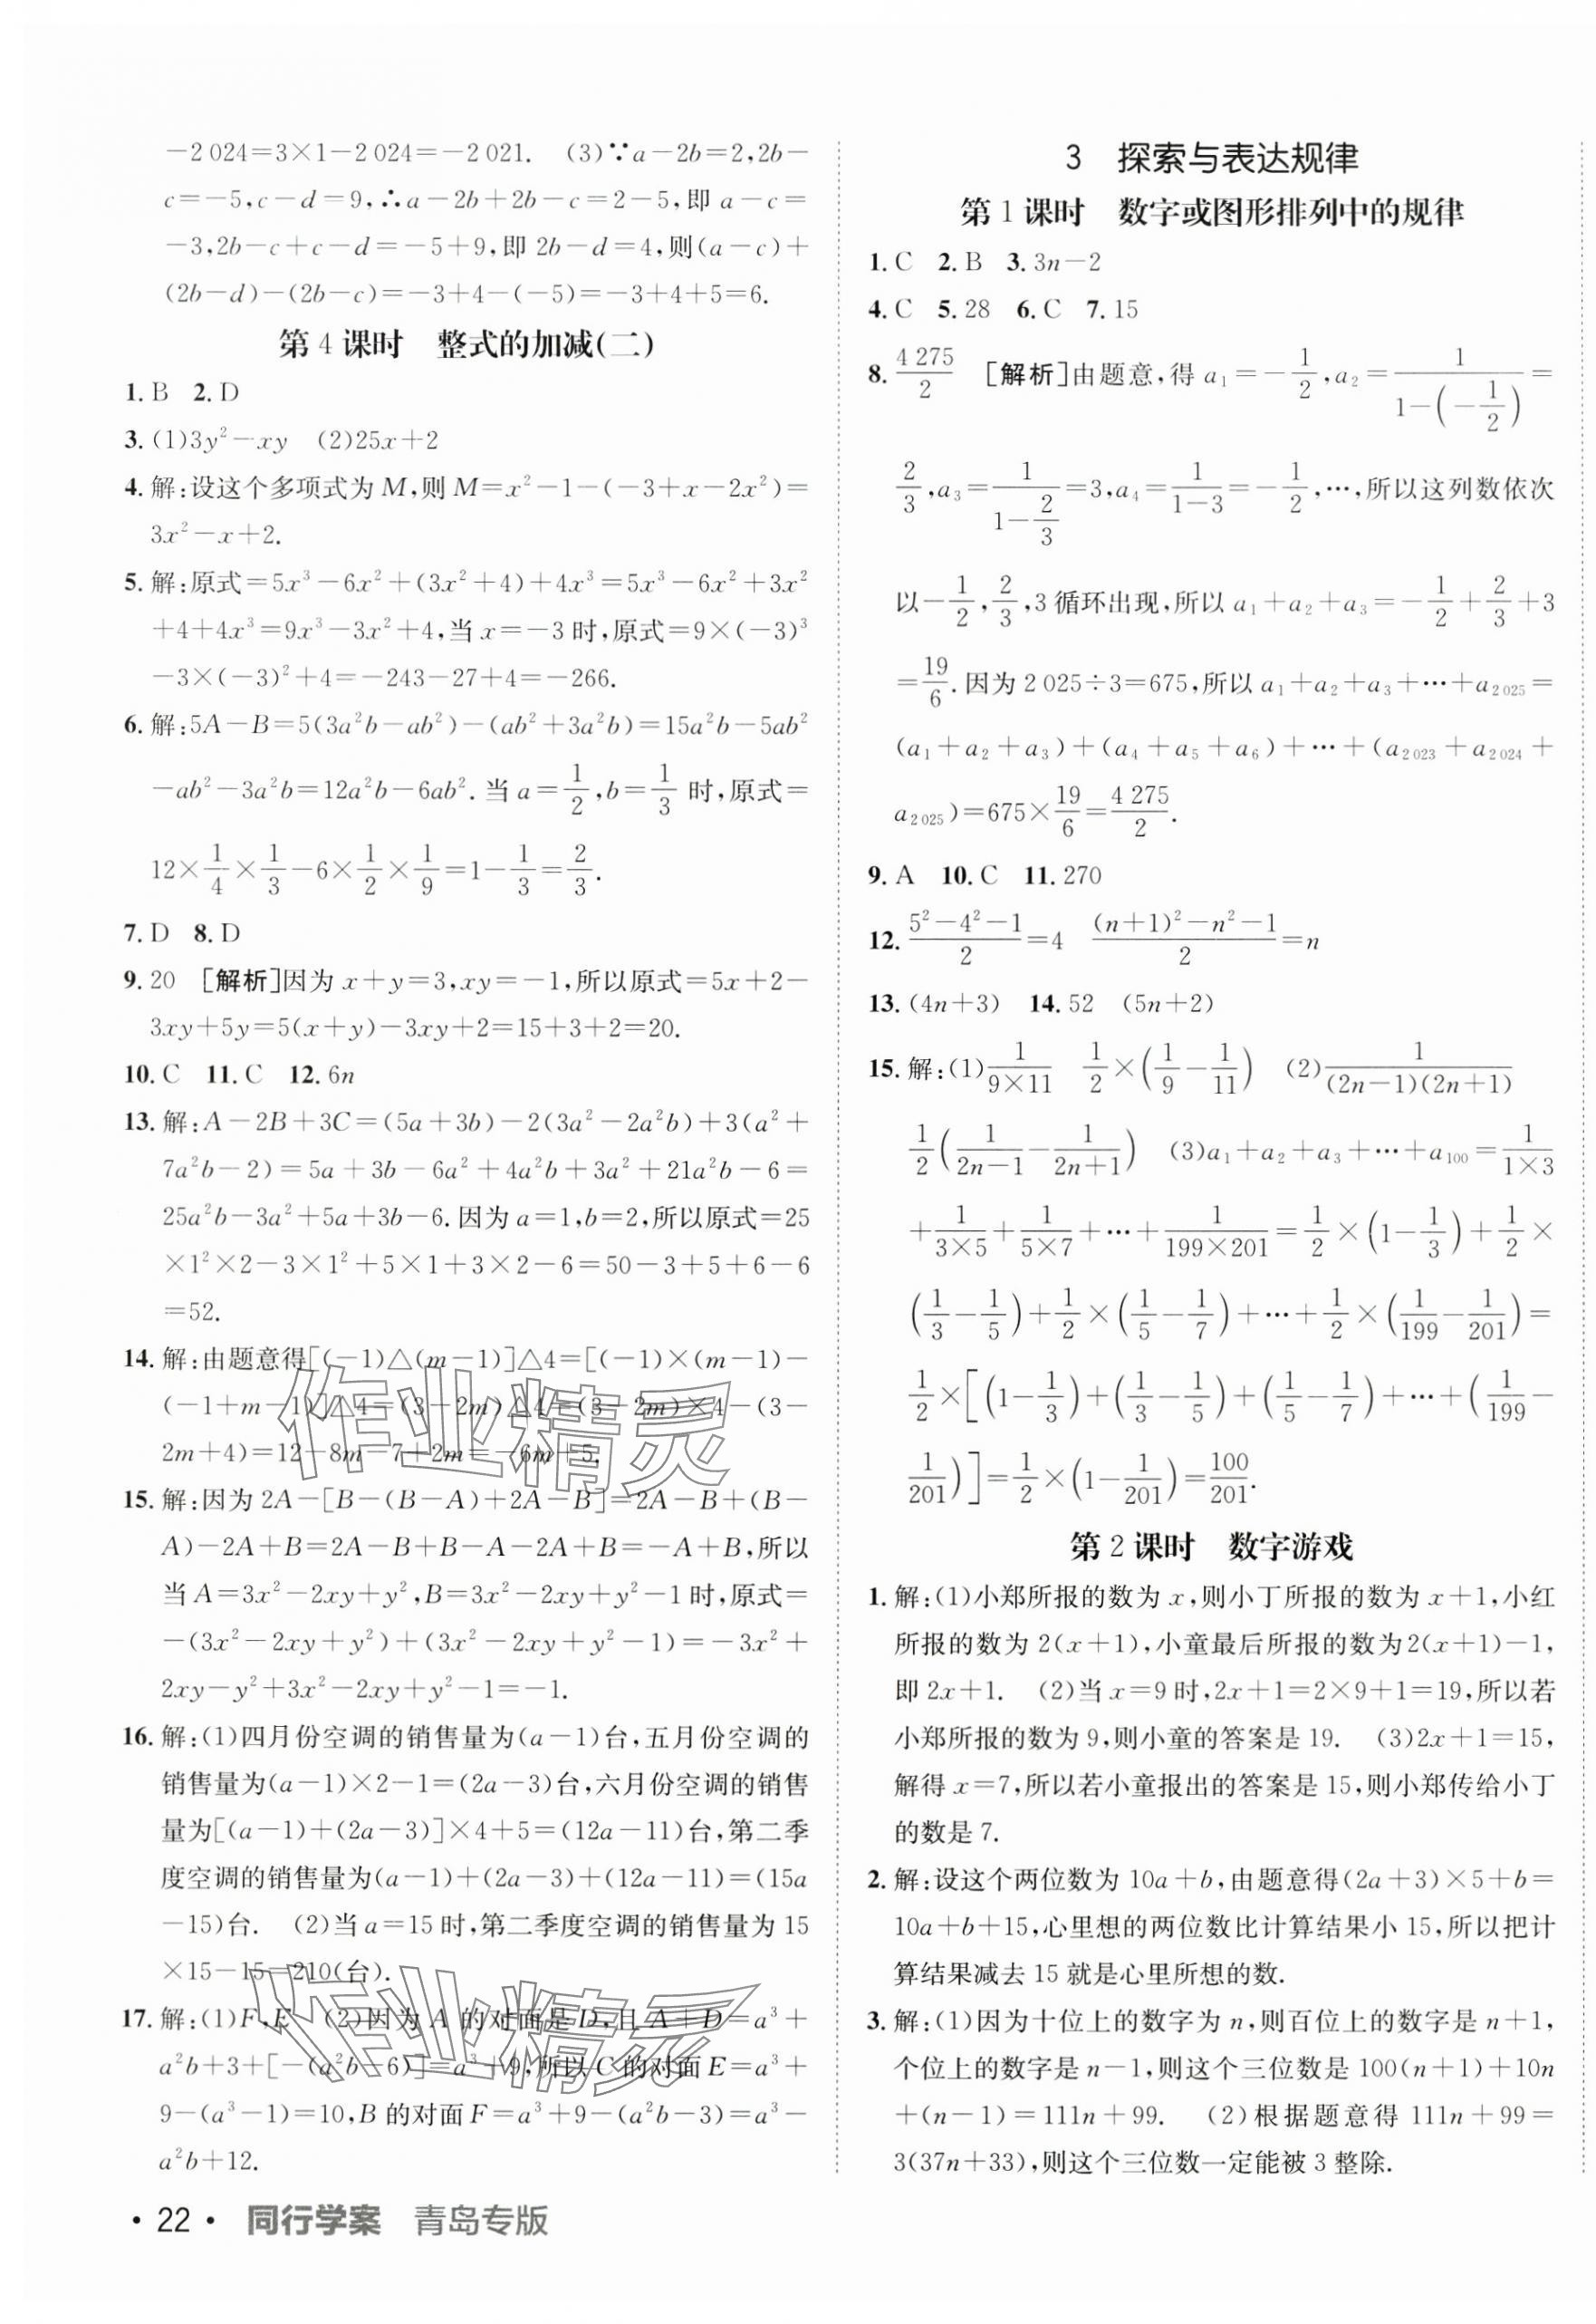 －2 024＝3×1－2 024＝－2 021. (3)∵a－2b＝2,2b－
c＝－5,c－d＝9,∴a－2b＋2b－c＝2－5,即 a－c＝
－3,2b－c＋c－d＝－5＋9,即 2b－d＝4,则(a－c)＋
(2b－d)－(2b－c)＝－3＋4－(－5)＝－3＋4＋5＝6.
第 4 课时 整式的加减(二)
1. B 2. D
3. (1)3y²－xy (2)25x＋2
4. 解:设这个多项式为 M,则 M＝x²－1－(－3＋x－2x²)＝
3x²－x＋2.
5. 解:原式＝5x³－6x²＋(3x²＋4)＋4x³＝5x³－6x²＋3x²
＋4＋4x³＝9x³－3x²＋4,当 x＝－3 时,原式＝9×(－3)³
－3×(－3)²＋4＝－243－27＋4＝－266.
6. 解:5A－B＝5(3a²b－ab²)－(ab²＋3a²b)＝15a²b－5ab²
－ab²－3a²b＝12a²b－6ab². 当 a＝1/2,b＝1/3 时,原式＝
12×1/4×1/3－6×1/2×1/9＝1－1/3＝2/3.
7. D 8. D
9. 20 [解析]因为 x＋y＝3,xy＝－1,所以原式＝5x＋2－
3xy＋5y＝5(x＋y)－3xy＋2＝15＋3＋2＝20.
10. C 11. C 12. 6n
13. 解:A－2B＋3C＝(5a＋3b)－2(3a²－2a²b)＋3(a²＋
7a²b－2)＝5a＋3b－6a²＋4a²b＋3a²＋21a²b－6＝
25a²b－3a²＋5a＋3b－6. 因为 a＝1,b＝2,所以原式＝25
×1²×2－3×1²＋5×1＋3×2－6＝50－3＋5＋6－6
＝52.
14. 解:由题意得[(－1)△(m－1)]△4＝[(－1)×(m－1)－
(－1＋m－1)]△4＝(3－2m)△4＝(3－2m)×4－(3－
2m＋4)＝12－8m－7＋2m＝－6m＋5.
15. 解:因为 2A－[B－(B－A)＋2A－B]＝2A－B＋(B－
A)－2A＋B＝2A－B＋B－A－2A＋B＝－A＋B,所以
当 A＝3x²－2xy＋y²,B＝3x²－2xy＋y²－1 时,原式＝
－(3x²－2xy＋y²)＋(3x²－2xy＋y²－1)＝－3x²＋
2xy－y²＋3x²－2xy＋y²－1＝－1.
16. 解:(1)四月份空调的销售量为(a－1)台,五月份空调的
销售量为(a－1)×2－1＝(2a－3)台,六月份空调的销售
量为[(a－1)＋(2a－3)]×4＋5＝(12a－11)台,第二季
度空调的销售量为(a－1)＋(2a－3)＋(12a－11)＝(15a
－15)台. (2)当 a＝15 时,第二季度空调的销售量为 15
×15－15＝210(台).
17. 解:(1)F,E (2)因为 A 的对面是 D,且 A＋D＝a³＋
a²b＋3＋[－(a²b－6)]＝a³＋9,所以 C 的对面 E＝a³＋
9－(a³－1)＝10,B 的对面 F＝a³＋9－(a²b－3)＝a³－
a²b＋12.
3 探索与表达规律
第 1 课时 数字或图形排列中的规律
1. C 2. B 3. 3n－2
4. C 5. 28 6. C 7. 15
8. 4 275/2 [解析]由题意,得 a₁＝－1/2,a₂＝1/(1－(－1/2))＝
2/3,a₃＝1/(1－2/3)＝3,a₄＝1/(1－3)＝－1/2,…,所以这列数依次
以－1/2,2/3,3 循环出现,所以 a₁＋a₂＋a₃＝－1/2＋2/3＋3
＝19/6. 因为 2 025÷3＝675,所以 a₁＋a₂＋a₃＋…＋a₂₀₂₅＝
(a₁＋a₂＋a₃)＋(a₄＋a₅＋a₆)＋…＋(a₂₀₂₃＋a₂₀₂₄＋
a₂₀₂₅)＝675×19/6＝4 275/2.
9. A 10. C 11. 270
12. (5²－4²－1)/2＝4 ((n＋1)²－n²－1)/2＝n
13. (4n＋3) 14. 52 (5n＋2)
15. 解:(1)1/(9×11) 1/2×(1/9－1/11) (2)1/((2n－1)(2n＋1))
1/2(1/(2n－1)－1/(2n＋1)) (3)a₁＋a₂＋a₃＋…＋a₁₀₀＝1/(1×3)
＋1/(3×5)＋1/(5×7)＋…＋1/(199×201)＝1/2×(1－1/3)＋1/2×
(1/3－1/5)＋1/2×(1/5－1/7)＋…＋1/2×(1/199－1/201)＝
1/2×[(1－1/3)＋(1/3－1/5)＋(1/5－1/7)＋…＋(1/199－
1/201)]＝1/2×(1－1/201)＝100/201.
第 2 课时 数字游戏
1. 解:(1)小郑所报的数为 x,则小丁所报的数为 x＋1,小红
所报的数为 2(x＋1),小童最后所报的数为2(x＋1)－1,
即 2x＋1. (2)当 x＝9 时,2x＋1＝2×9＋1＝19,所以若
小郑所报的数为 9,则小童的答案是 19. (3)2x＋1＝15,
解得 x＝7,所以若小童报出的答案是 15,则小郑传给小丁
的数是 7.
2. 解:设这个两位数为 10a＋b,由题意得(2a＋3)×5＋b＝
10a＋b＋15,心里想的两位数比计算结果小 15,所以把计
算结果减去 15 就是心里所想的数.
3. 解:(1)因为十位上的数字为 n,则百位上的数字是 n＋1,
个位上的数字是 n－1,则这个三位数是 100(n＋1)＋10n
＋(n－1)＝111n＋99. (2)根据题意得 111n＋99＝
3(37n＋33),则这个三位数一定能被 3 整除.
作业精灵
作业精灵
• 22 • 同行学案 青岛专版